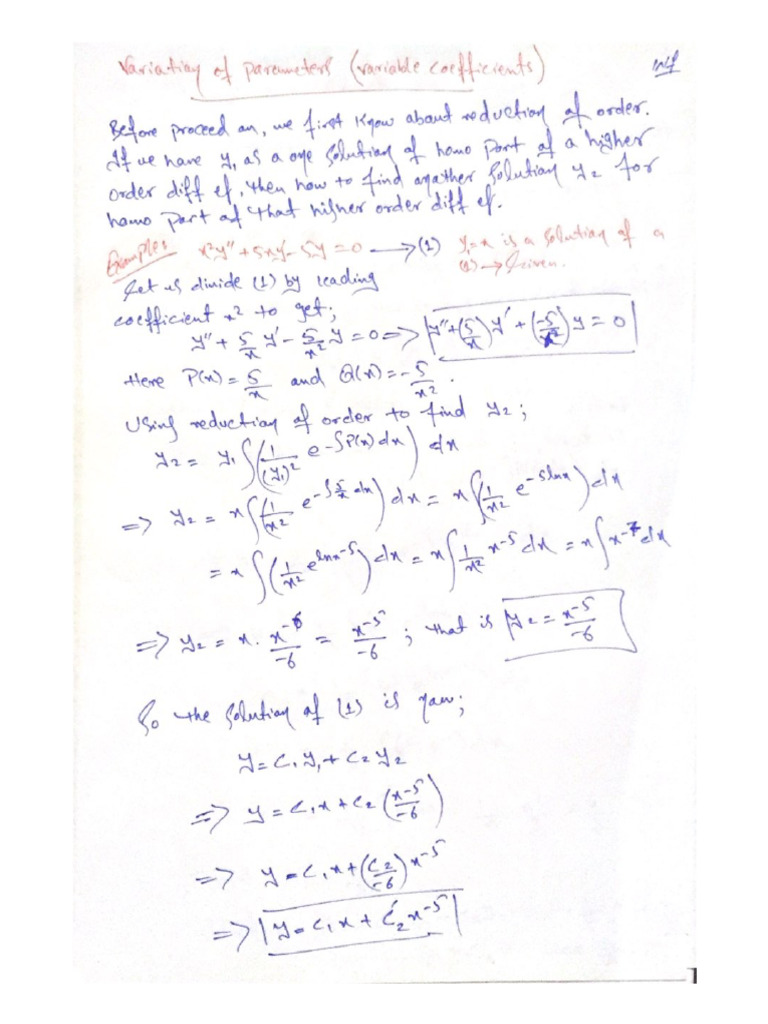 Variation of Parameters (variable coefficients)
Before proceed on, we first know about reduction of order.
If we have y₁ as a one solution of homo part of a higher
order diff eq, then how to find another solution y₂ for
homo part of that higher order diff eq.
Example: x²y'' + 5xy' - 5y = 0 → (1) y₁=x is a solution of a
(1) → Given.
Let us divide (1) by leading
coefficient x² to get;
y'' + 5/x y' - 5/x² y = 0 => y'' + (5/x) y' + (-5/x²) y = 0
Here P(x) = 5/x and Q(x) = -5/x².
Using reduction of order to find y₂;
y₂ = y₁ ∫(1/(y₁)² e^-∫P(x)dx) dx
=> y₂ = x ∫(1/x² e^-∫5/x dx) dx = x ∫(1/x² e^-5lnx) dx
= x ∫(1/x² e^lnx^-5) dx = x ∫ 1/x² x^-5 dx = x ∫ x^-7 dx
=> y₂ = x · x^-6/-6 = x^-5/-6 ; that is y₂ = x^-5/-6
So the solution of (1) is now;
y = c₁y₁ + c₂y₂
=> y = c₁x + c₂(x^-5/-6)
=> y = c₁x + (c₂/-6) x^-5
=> y = c₁x + c₂' x^-5